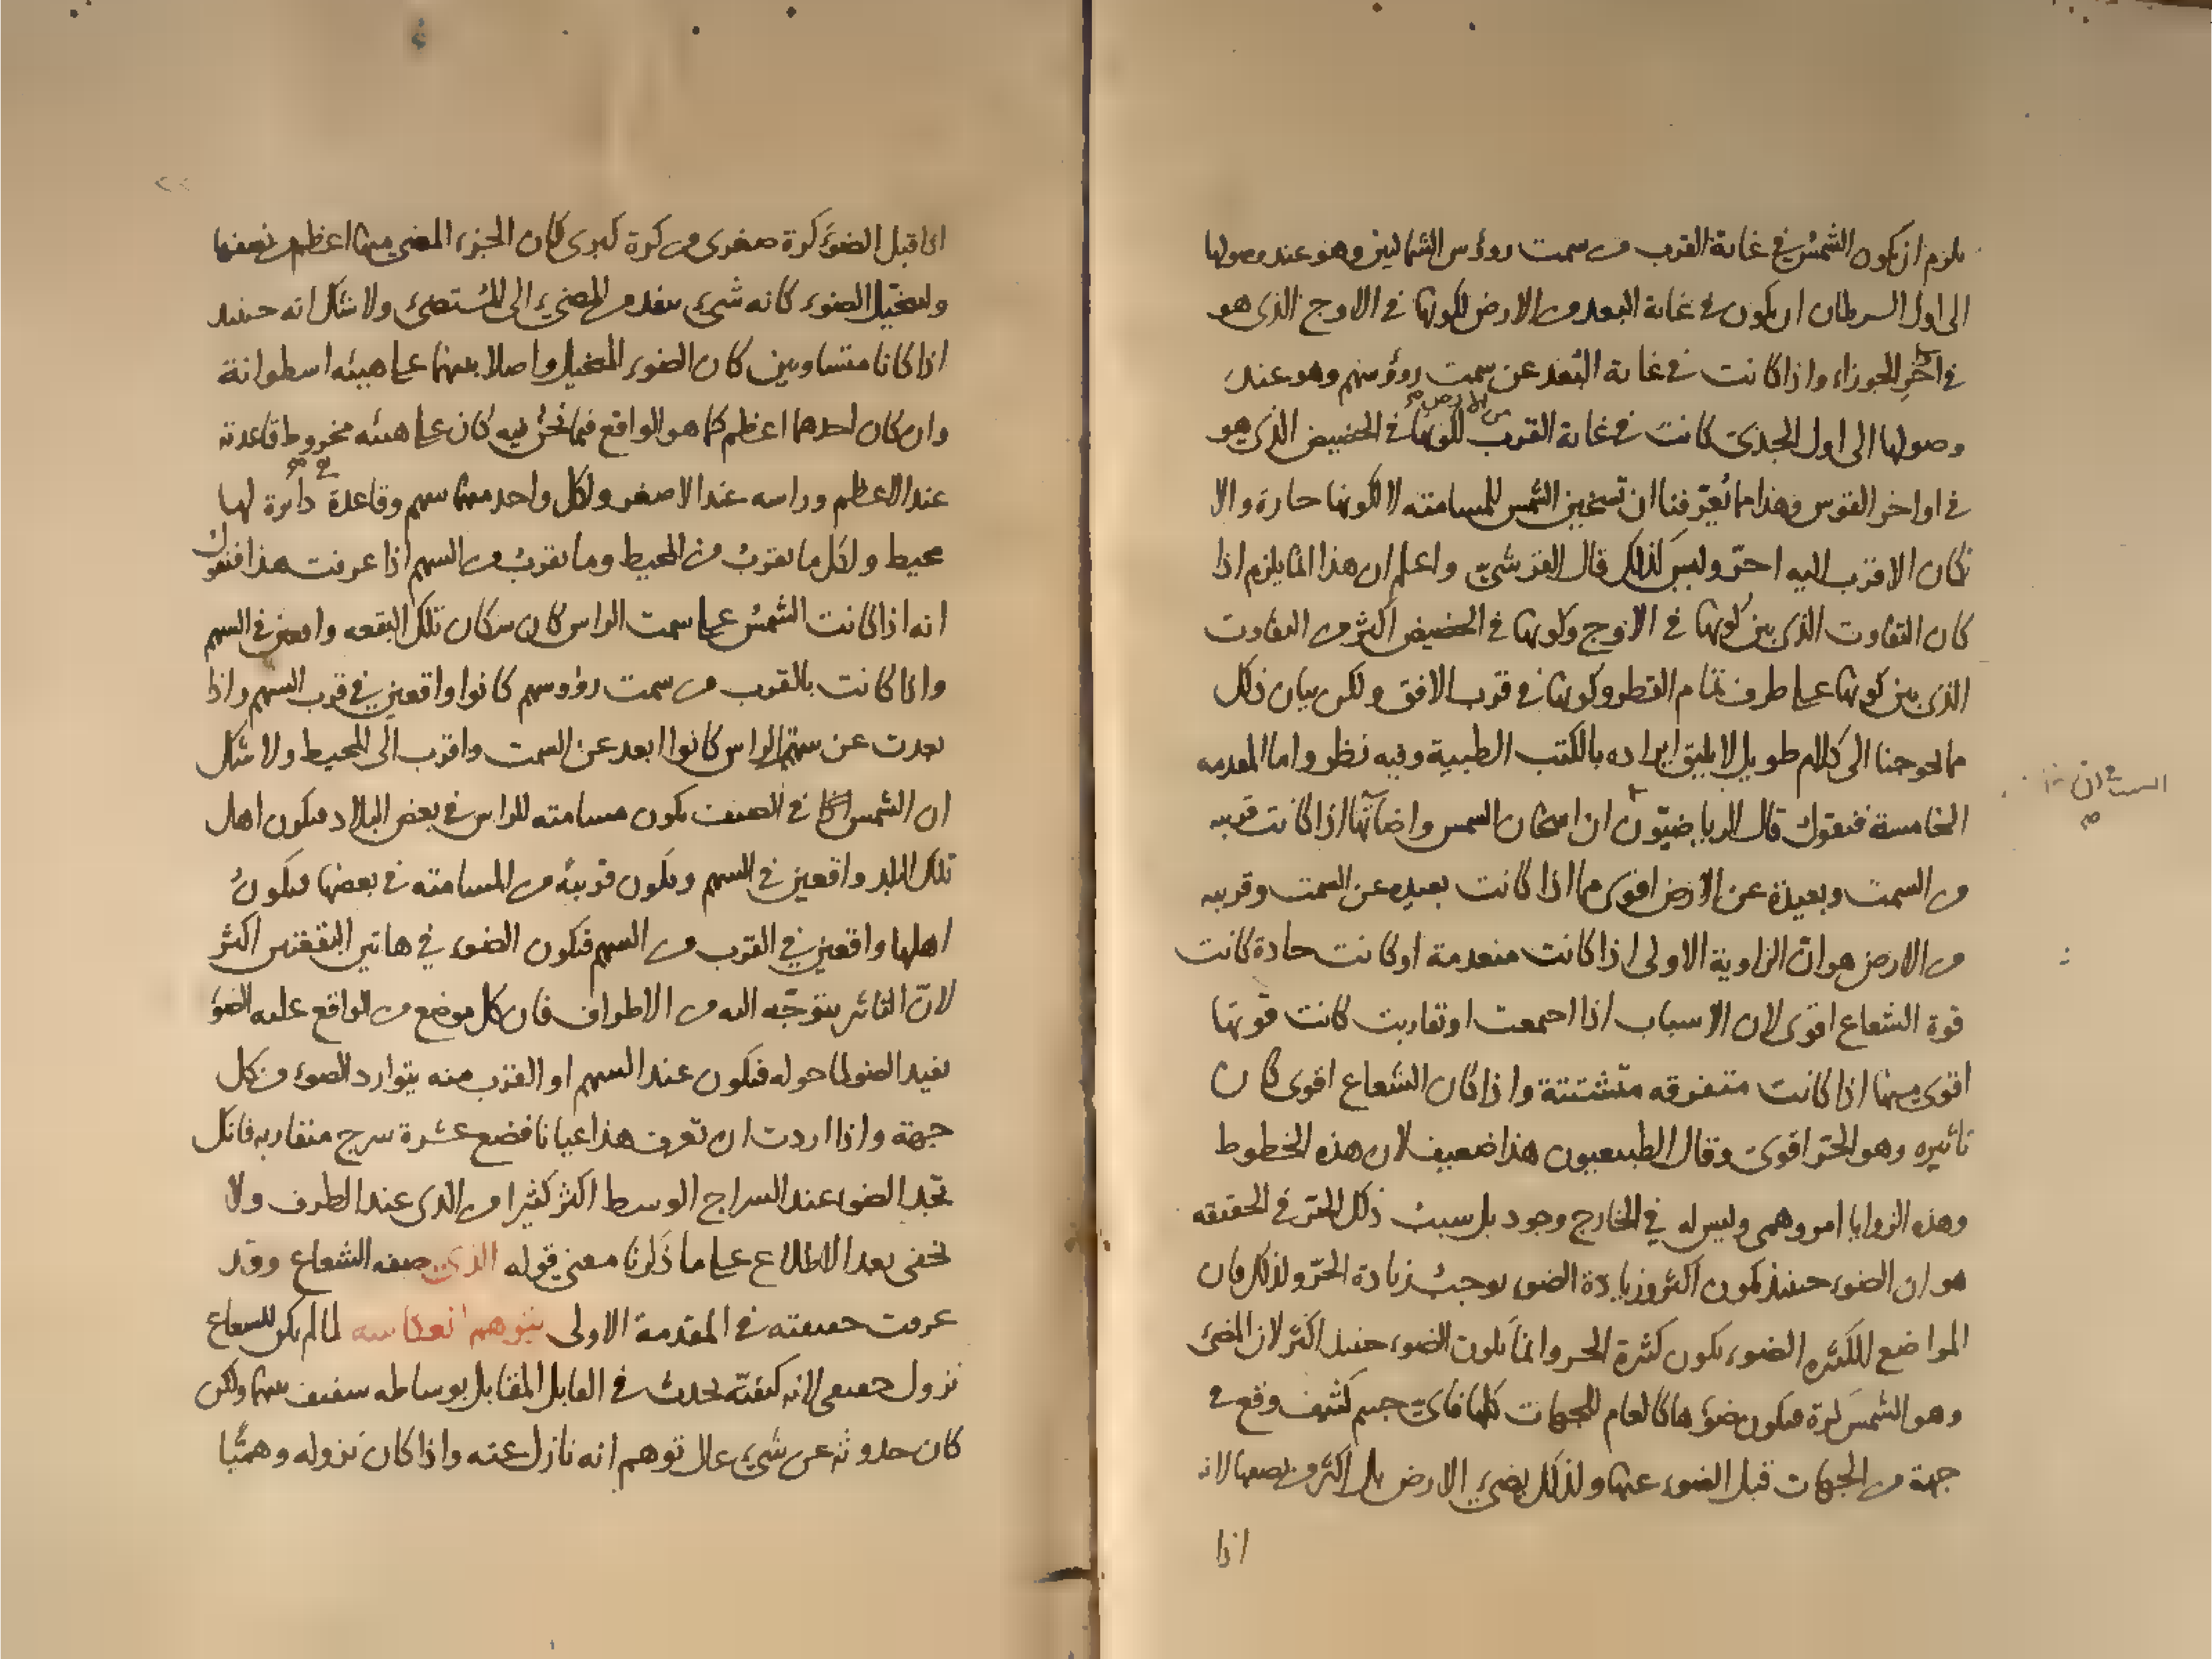 يلزم ان يكون الشمس في غاية القرب من سمت رؤس الشماليين وهو عند وصولها
الى اول السرطان ان يكون في غاية البعد من الارض لكونها في الاوج الذى هو
في اخر الجوزاء واذا كانت في غاية البُعد عن سمت رؤسهم وهو عند
من الارض صح
وصولها الى اول الجدى كانت في غاية القرب لكونها في الحضيض الذى هو
في اواخر القوس وهذا مما يُعرّفنا ان تسخين الشمس للمسامته لا لكونها حارة والا
لكان الاقرب اليه احرّ وليس كذلك قال القرشي واعلم ان هذا انما يلزم اذا
كان التفاوت الذى بين كونها في الاوج وكونها في الحضيض اكثر من التفاوت
الذى بين كونها على طرف تمام القطر وكونها في قرب الافق ولكن بيان ذلك
مما يحوجنا الى كلام طويل لا يليق ايراده بالكتب الطبية وفيه نظر واما المقدمه
الخامسة فنقول قال الرياضيّون ان اسخان الشمس واضاءتها اذا كانت قريبه
من السمت وبعيدة عن الارض اقوى مما اذا كانت بعيده عن السمت وقريبه
من الارض هو انّ الزاوية الاولى اذا كانت منعدمة او كانت حادة كانت
قوة الشعاع اقوى لان الاسباب اذا اجتمعت او تقاربت كانت قوّتها
اقوى منها اذا كانت متفرقه متشتتة واذا كان الشعاع اقوى كان
تاثيره وهو الحرّ اقوى وقال الطبيعيون هذا ضعيف لان هذه الخطوط
وهذه الزوايا امر وهمى وليس له في الخارج وجود بل سبب ذلك الحرّ في الحقيقه
هو ان الضوء حينئذ يكون اكثر وزيادة الضوء يوجب زيادة الحرّ ولذلك فان
المواضع الكثيره الضوء يكون كثيرة الحر وانما يكون الضوء حينئذ اكثر لان المضئ
وهو الشمس كرة فيكون ضوءها كالعام للجهات كلها فاى جسم كثيف وقع في
جهة من الجهات قبل الضوء عنها ولذلك يضئ الارض بل اكثر من نصفها لانه
اذا
اذا قبل الضوء كرة صغرى من كرة كبرى كان الجزء المضئ منها اعظم من نصفها
وليتخيّل الضوء كانه شئ ينفذ من المضئ الى المستضئ ولا شك انه حينئذ
اذا كانا متساويين كان الضوء المتخيل واصلا بينهما على هيئه اسطوانة
وان كان احدهما اعظم كما هو الواقع فيما نحن فيه كان على هيئه مخروط قاعدته
عند الاعظم وراسه عند الاصغر ولكل واحد منهما سهم وقاعدة دائرة لها
محيط ولكل ما يقربُ من المحيط وما يقربُ من السهم اذا عرفت هذا فنقول
انه اذا كانت الشمسُ على سمت الراس كان سكان تلك البقعه واقعين في السهم
واذا كانت بالقرب من سمت رؤوسهم كانوا واقعين في قرب السهم واذا
بعدت عن سمت الراس كانوا ابعد عن السمت واقرب الى المحيط ولا شك
ان الشمس في الصيف يكون مسامته للراس في بعض البلاد فيكون اهل
تلك البلد واقعين في السهم ويكون قريبه من المسامته في بعضها فيكونُ
اهلها واقعين في القرب من السهم فيكون الضوء في هاتين البقعتين اكثر
لانّ التاثير يتوجّه اليه من الاطراف فان كل موضع من الواقع عليه الضوء
يفيد الضوء لما حوله فيكون عند السهم او القرب منه يتوارد الضوء من كل
جهة واذا اردت ان تعرف هذا عيانا فضع عشرة سرج متقاربه فانك
تجد الضوء عند السراج الوسط اكثر كثيرا من الذى عند الطرف ولا
يخفى بعد الاطلاع على ما ذكرنا معنى قوله الذى صفه الشعاع وقد
عرفت حقيقته في المقدمة الاولى يتوهم انعكاسه لما لم يكن للشعاع
نزول حقيقى لانه كيفيّة يحدث في القابل المقابل بوساطه شفيف بينهما ولكن
كان حدوثه عن شئ عال توهم انه نازل عنه واذا كان نزوله وهميًّا